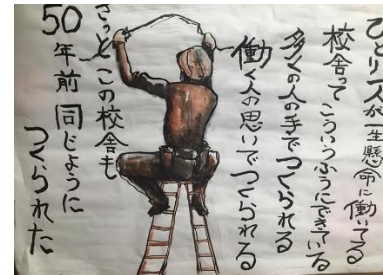 ひとり一人が一生懸命に働いてる
校舎ってこういうふうにできている
多くの人の手でつくられる
働く人の思いでつくられる
きっとこの校舎も
50年前同じように
つくられた